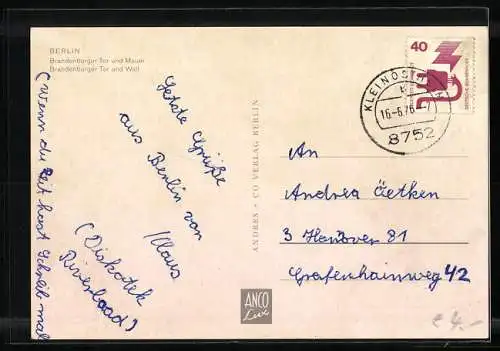 BERLIN
Brandenburger Tor und Mauer
Brandenburger Tor and Wall
Letzte Grüße
aus Berlin von
Klaus
(Diskotek
Riverboad)
(Wenn du Zeit hast schreib mal
ANDRES + CO VERLAG BERLIN
ANCO
Lux
40
16.-6.76
8752
An
Andrea Oetken
3 Hannover 81
Grafenhainweg 42
€ 4.-